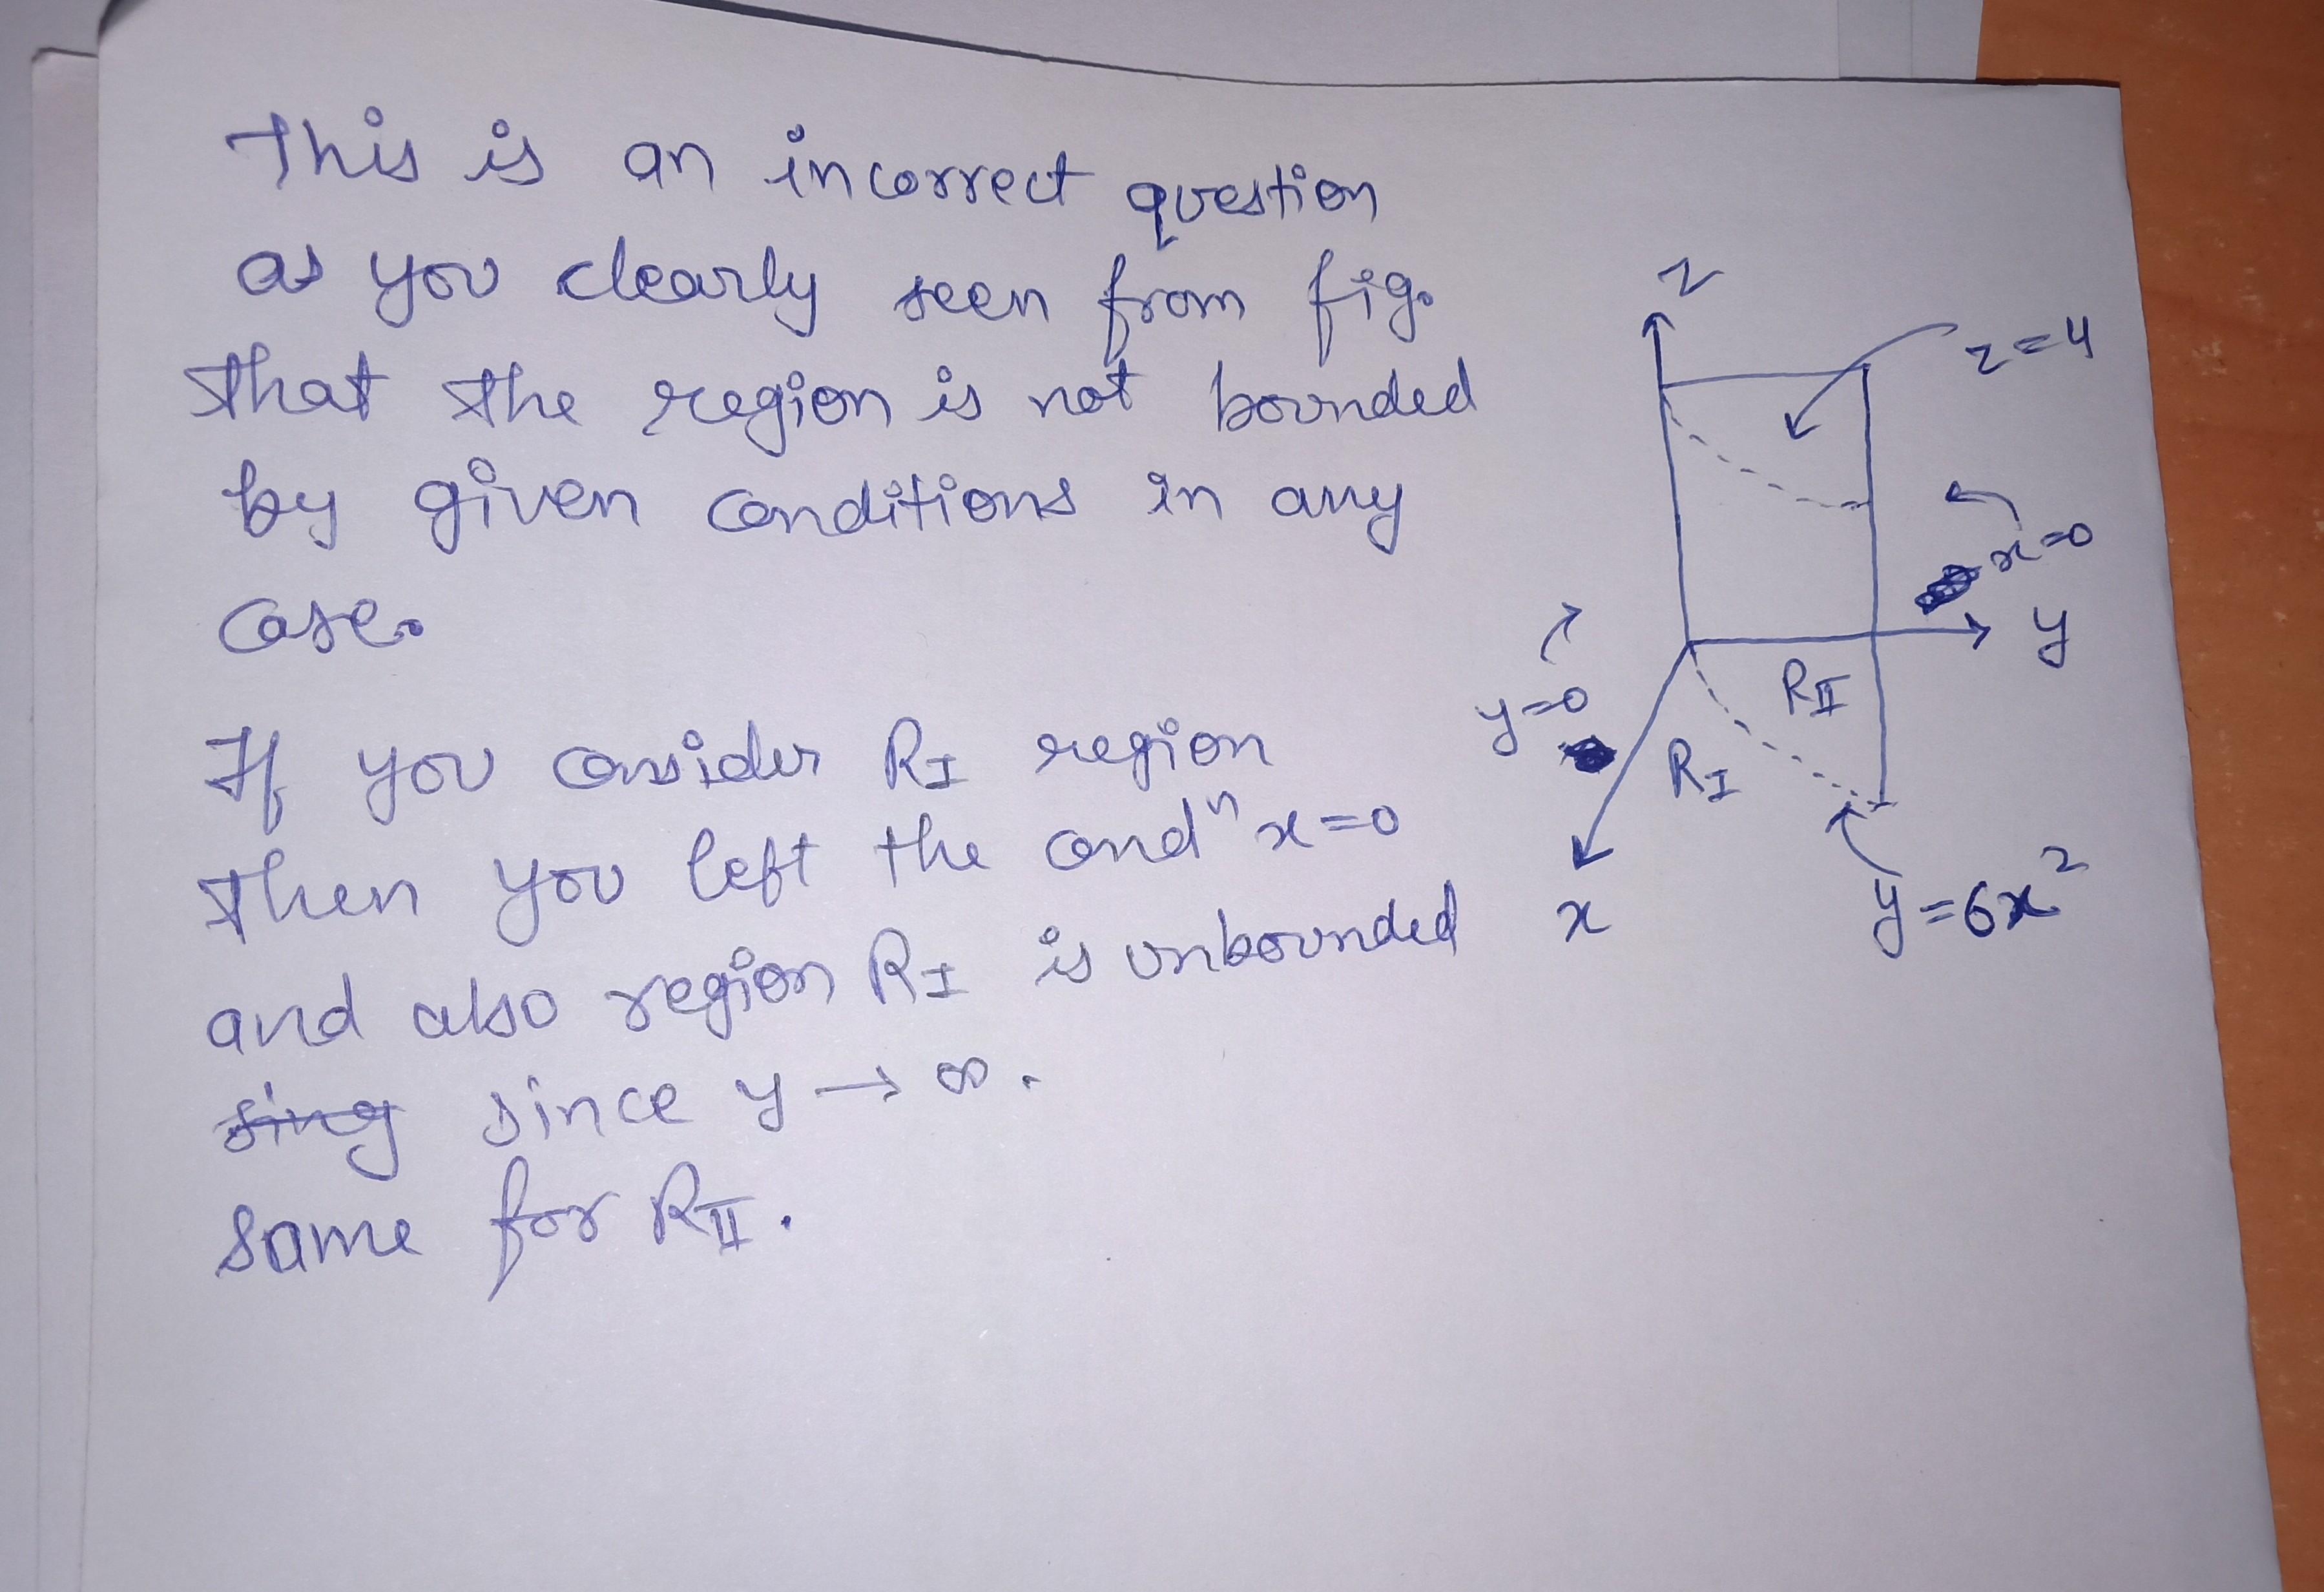 This is an incorrect question
as you clearly seen from fig.
that the region is not bounded
by given conditions in any
case.
If you consider R_I region
then you left the condⁿ x=0
and also region R_I is unbounded
since y → ∞.
same for R_II.
z
z=4
x=0
y
y=0
R_II
R_I
x
y=6x²